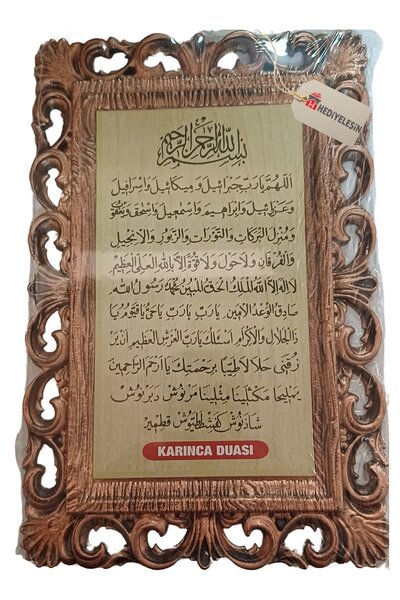 HEDIYELESIN
بسم الله الرحمن الرحيم
اللهم يارب جبرائيل وميكائيل واسرافيل
وعزرائيل وابراهيم واسمعيل واسحق ويعقوب
ومنزل البركات والتورات والزبور والانجيل
والفرقان ولاحول ولاقوة الا بالله العلى العظيم
لا اله الا الله الملك الحق المبين محمد رسول الله
صادق الوعد الامين يارب يارب ياحى ياقيوم يا
ذا الجلال والاكرام اسئلك يارب العرش العظيم ان ير
زقنى حلالا طيبا برحمتك يا ارحم الراحمين
يمليخا مكثلينا مثلينا مرنوش دبرنوش
شاذنوش كفشططيوش قطمير
KARINCA DUASI